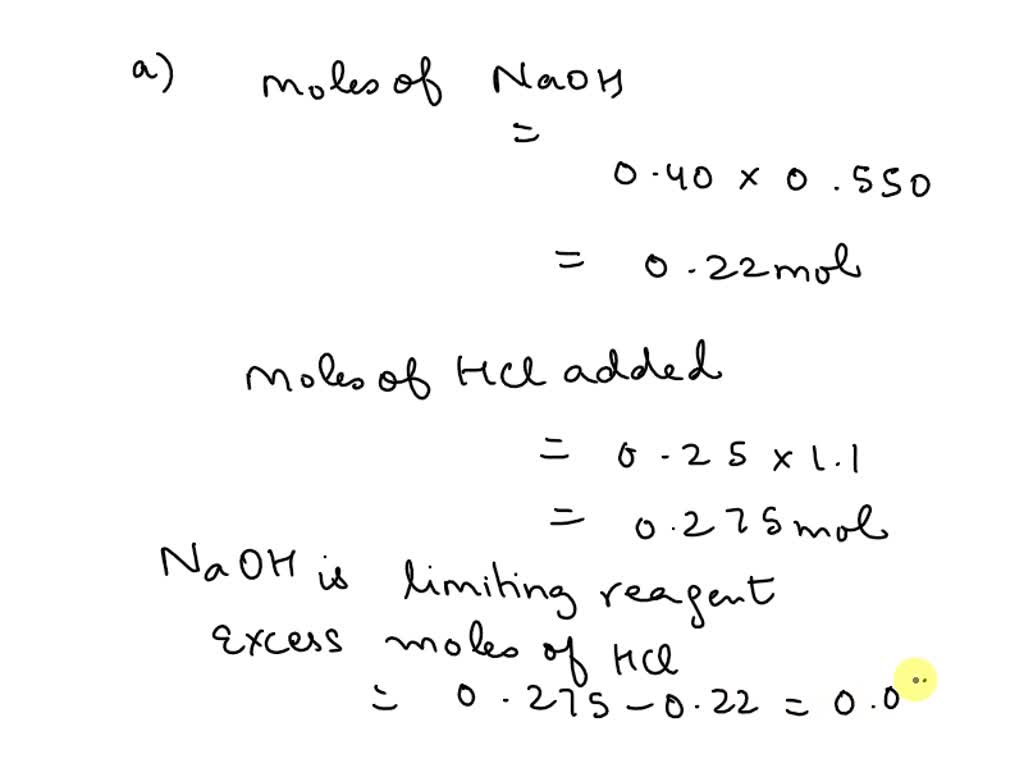 a) moles of NaOH
=
0.40 x 0.550
= 0.22 mol
moles of HCl added
= 0.25 x 1.1
= 0.275 mol
NaOH is limiting reagent
Excess moles of HCl
= 0.275 - 0.22 = 0.0